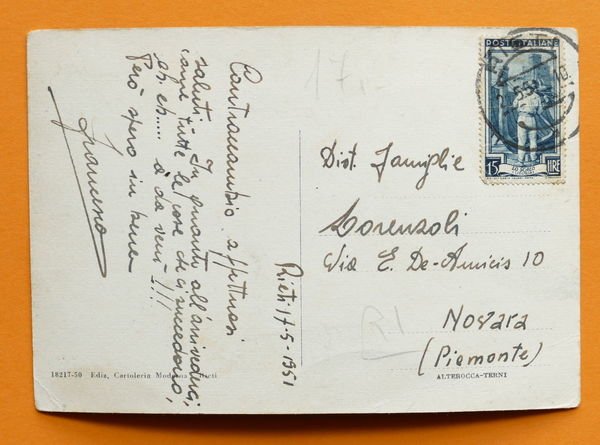 Contraccambio affettuosi
saluti. In quanto all'arrivederci,
 tutte le cose che si succedono,
eh eh.... à da venì!!!!
Però spero in bene
Francesco
Rieti 17-5-1951
17.-
POSTE ITALIANE
15 LIRE
Dist. Famiglie
Lorenzoli
Via E. De-Amicis 10
Novara
(Piemonte)
R1
18217-50 Ediz. Cartoleria Moderna - Rieti
ALTEROCCA-TERNI